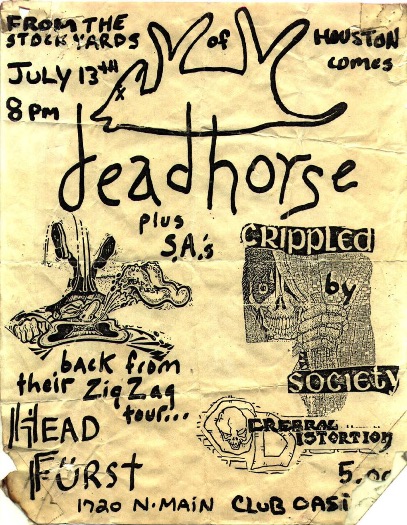 FROM THE
STOCKYARDS
of
HOUSTON
comes
JULY 13TH
8 PM
deadhorse
plus
S.A.'s
CRIPPLED
by
SOCIETY
back from
their Zig Zag
tour...
HEAD
FÜRST
CEREBRAL
DISTORTION
5.00
1720 N. MAIN CLUB OASI